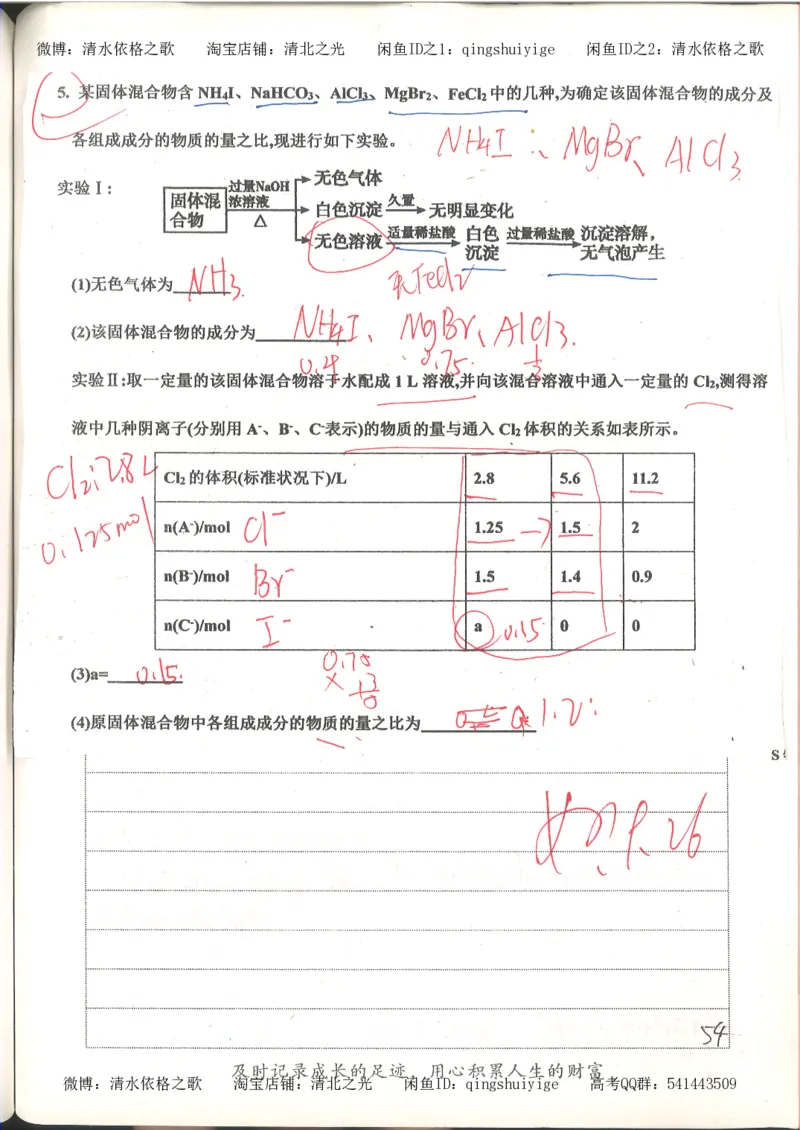 微博：清水依格之歌 淘宝店铺：清北之光 闲鱼ID之1：qingshuiyige 闲鱼ID之2：清水依格之歌
5. 某固体混合物含 NH₄I、NaHCO₃、AlCl₃、MgBr₂、FeCl₂ 中的几种,为确定该固体混合物的成分及
各组成成分的物质的量之比,现进行如下实验。
NH4I、MgBr、AlCl3
实验Ⅰ:
固体混合物
过量NaOH浓溶液
△
无色气体
白色沉淀 久置 无明显变化
无色溶液 适量稀盐酸 白色沉淀 过量稀盐酸 沉淀溶解,无气泡产生
无FeCl2
(1)无色气体为 NH3.
(2)该固体混合物的成分为 NH4I、MgBr、AlCl3.
0.4 0.75
实验Ⅱ:取一定量的该固体混合物溶于水配成 1 L 溶液,并向该混合溶液中通入一定量的 Cl₂,测得溶
液中几种阴离子(分别用 A⁻、B⁻、C⁻表示)的物质的量与通入 Cl₂ 体积的关系如表所示。
Cl2:2.8L
0.125mol
Cl₂ 的体积(标准状况下)/L 2.8 5.6 11.2
n(A⁻)/mol Cl⁻ 1.25 1.5 2
n(B⁻)/mol Br⁻ 1.5 1.4 0.9
n(C⁻)/mol I⁻ a 0.15 0 0
(3)a= 0.15.
(4)原固体混合物中各组成成分的物质的量之比为
S
54
及时记录成长的足迹，用心积累人生的财富
微博：清水依格之歌 淘宝店铺：清北之光 闲鱼ID：qingshuiyige 高考QQ群：541443509